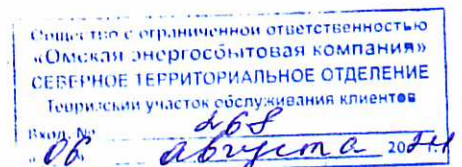 Общество с ограниченной ответственностью
«Омская энергосбытовая компания»
СЕВЕРНОЕ ТЕРРИТОРИАЛЬНОЕ ОТДЕЛЕНИЕ
Тевризский участок обслуживания клиентов
Вход. № 268
« 06 августа 20 г.